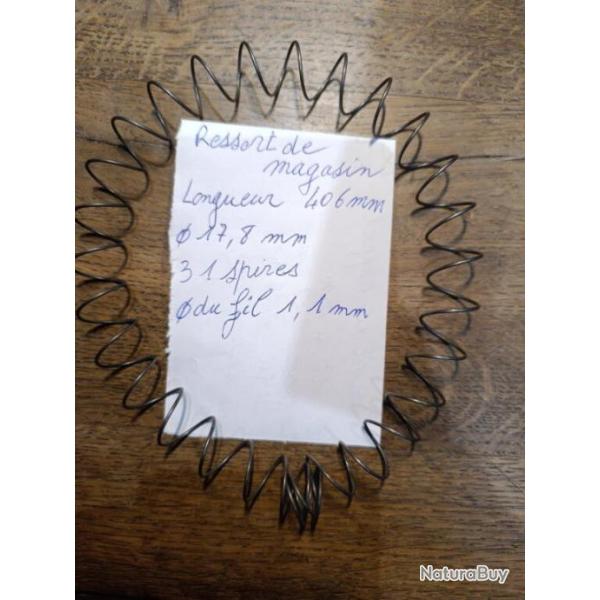 Ressort de
magasin
Longueur 406mm
φ 17,8 mm
31 spires
φ du fil 1,1mm
NaturaBuy